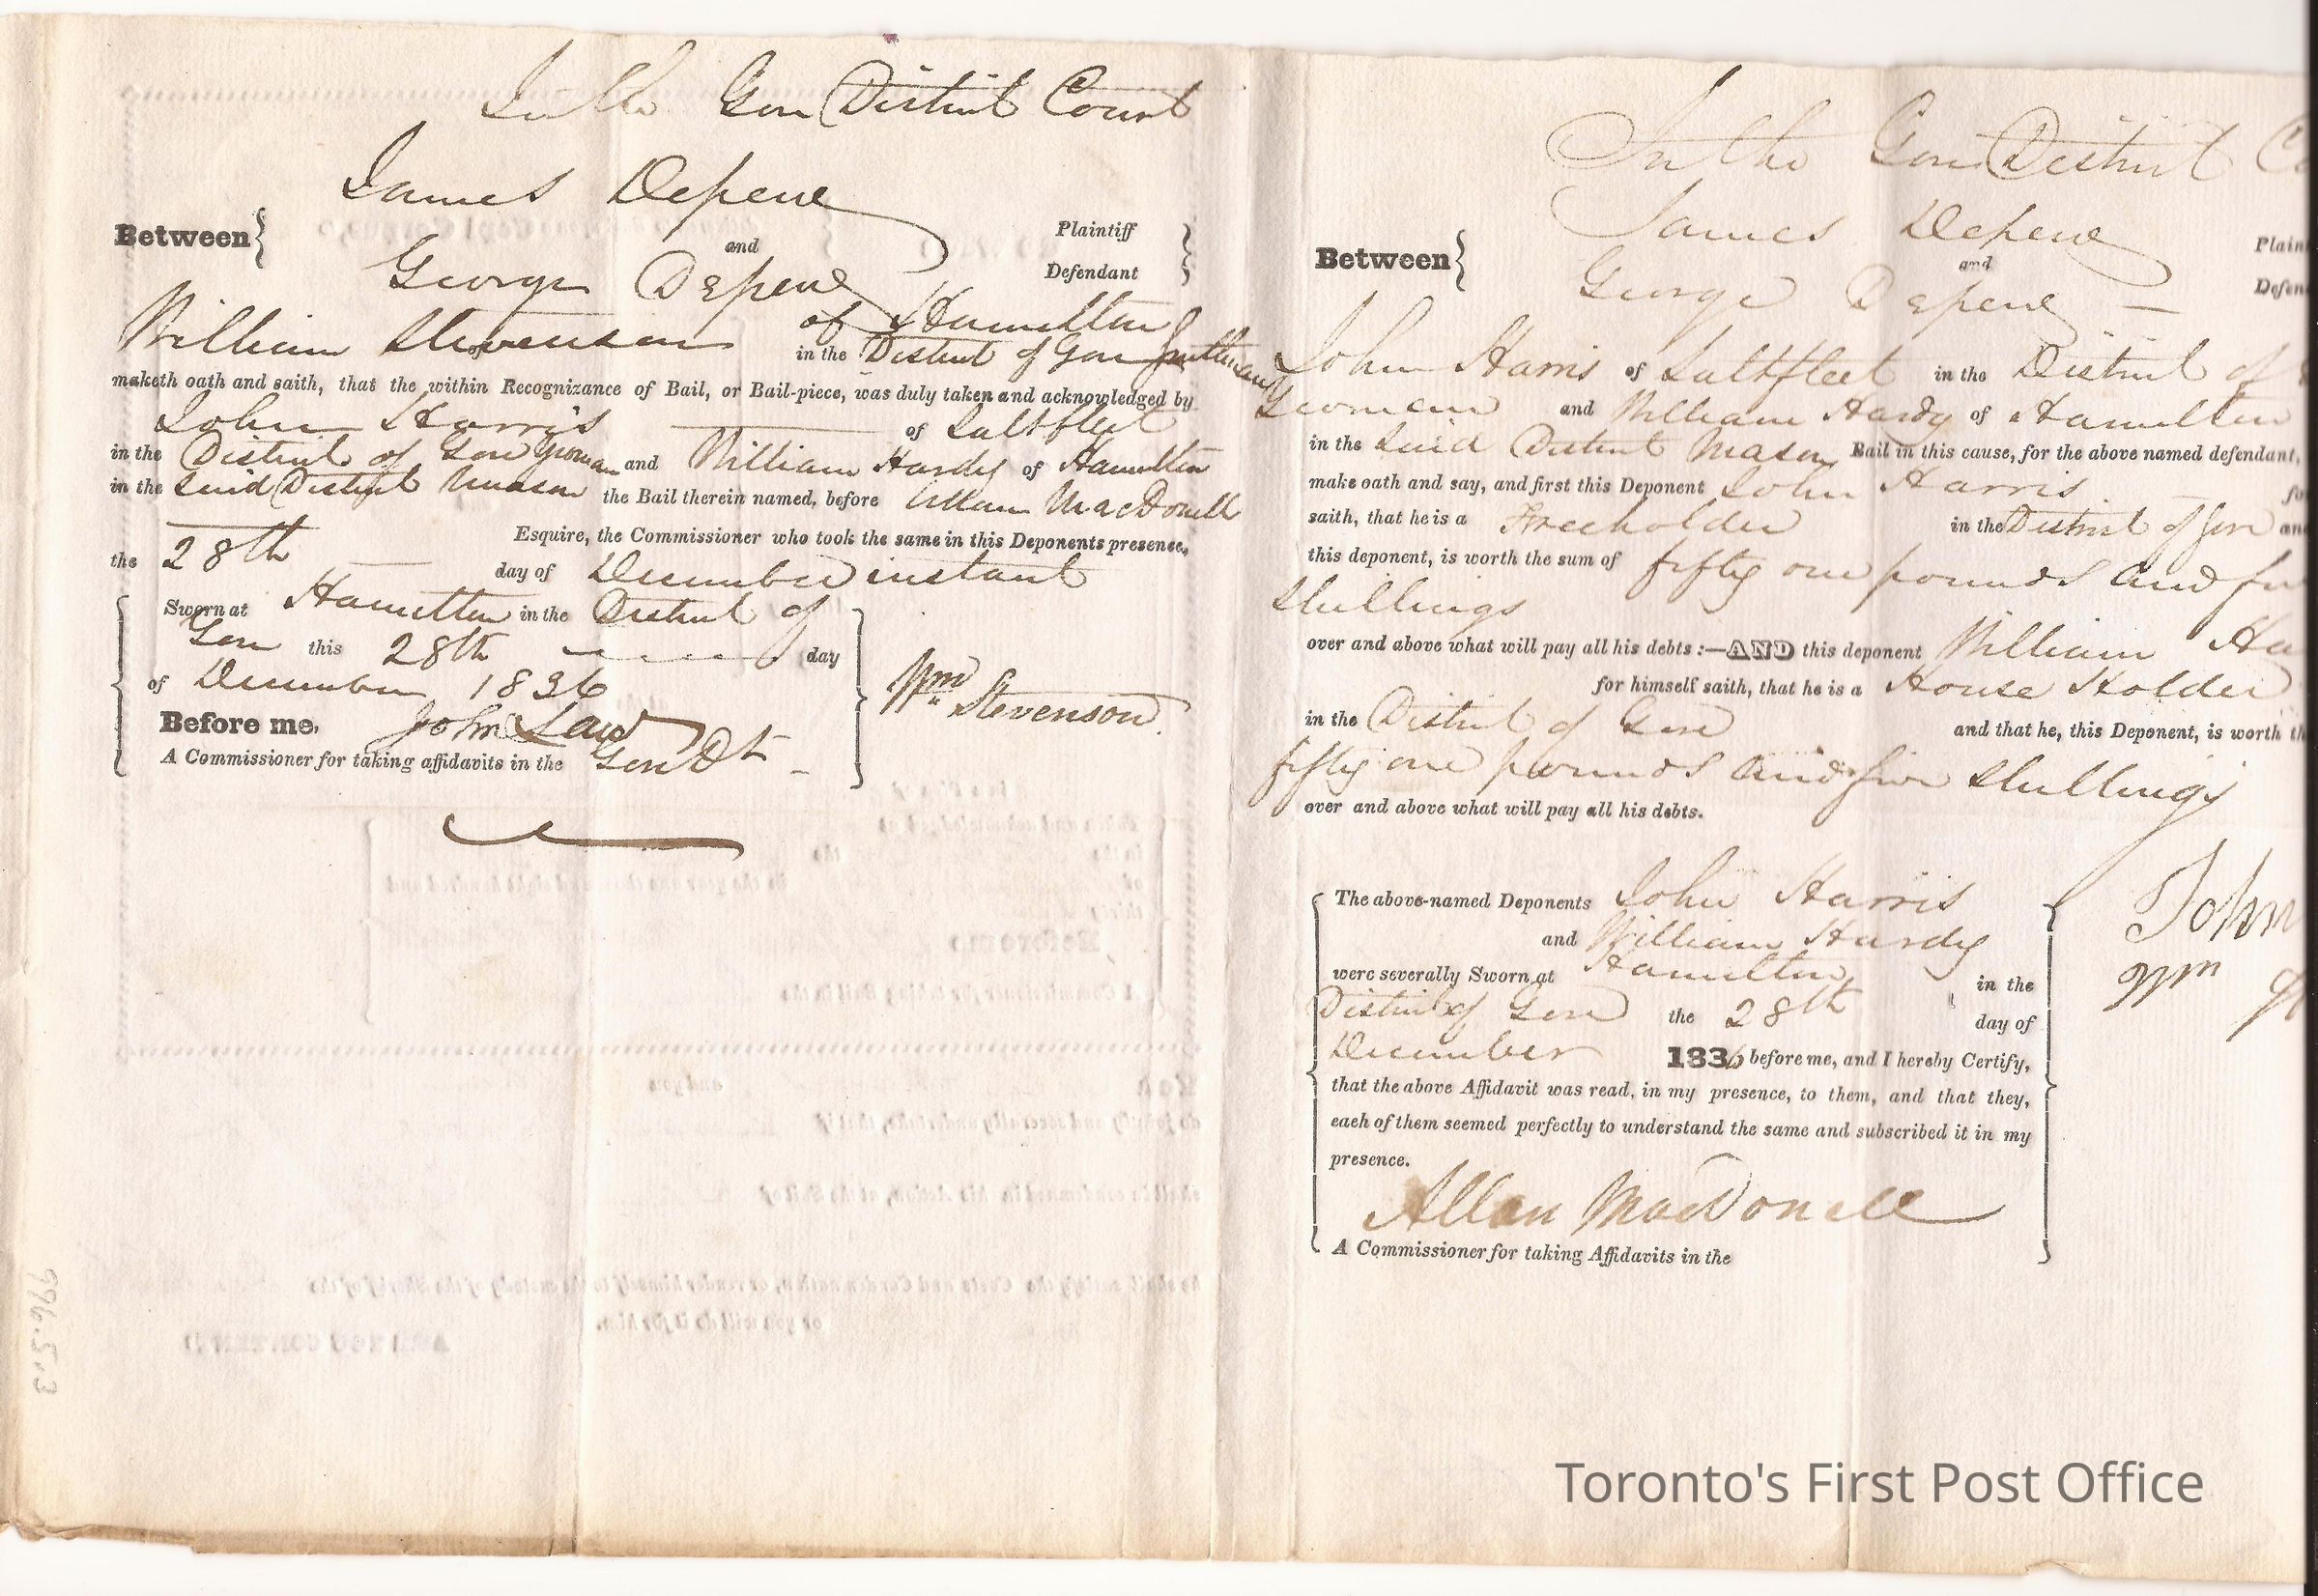 In the Gore District Court
James Depene
Between
and
Plaintiff
George Depene
Defendant
William Stevenson of Hamilton
in the District of Gore Gentleman
maketh oath and saith, that the within Recognizance of Bail, or Bail-piece, was duly taken and acknowledged by
John Harris of Saltfleet
in the District of Gore Yeoman and William Hardy of Hamilton
in the Said District Mason the Bail therein named, before Allan MacDonell
Esquire, the Commissioner who took the same in this Deponents presence,
the 28th day of December instant
Sworn at Hamilton in the District of
Gore this 28th day
of December 1836
Wm Stevenson
Before me, John Law
A Commissioner for taking affidavits in the Gore Dt
996.5.3
In the Gore District
James Depene
Between
and
Plain
George Depene
Defen
John Harris of Saltfleet in the District of
Yeoman and William Hardy of Hamilton
in the Said District Mason Bail in this cause, for the above named defendant,
make oath and say, and first this Deponent John Harris
saith, that he is a Freeholder in the District of Gore
this deponent, is worth the sum of fifty one pounds and
Shillings
over and above what will pay all his debts:—AND this deponent William Ha
for himself saith, that he is a House Holder
in the District of Gore and that he, this Deponent, is worth th
fifty one pounds and five Shillings
over and above what will pay all his debts.
The above-named Deponents John Harris
and William Hardy
were severally Sworn at Hamilton in the
District of Gore the 28th day of
December 1836 before me, and I hereby Certify,
that the above Affidavit was read, in my presence, to them, and that they,
each of them seemed perfectly to understand the same and subscribed it in my
presence.
John
Wm
Allan MacDonell
A Commissioner for taking Affidavits in the
Toronto's First Post Office